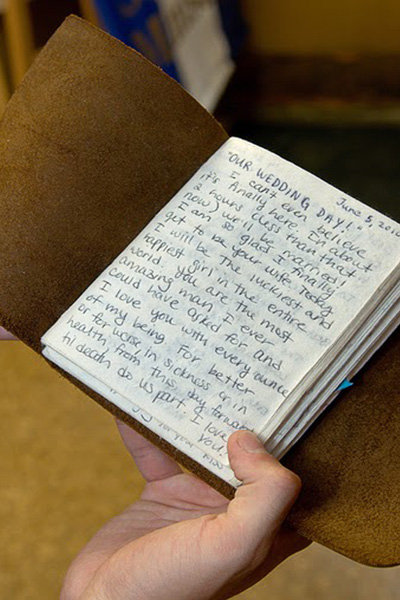 June 5, 2010
"OUR WEDDING DAY!"
I can't even believe
it's finally here. In about
2 hours (less than that
now) we'll be married!
I am so glad I finally
get to be your wife today.
I will be the luckiest and
happiest girl in the entire
world. You are the most
amazing man I ever
could have asked for and
I love you with every ounce
of my being. For better
or for worse in sickness or in
health, from this day forward
til death do us part. I love
you!